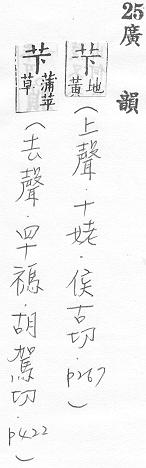 25廣韻
芐 地黃(上聲.十姥.侯古切.p267)
芐 蒲苹草(去聲.四十禡.胡駕切.p422)